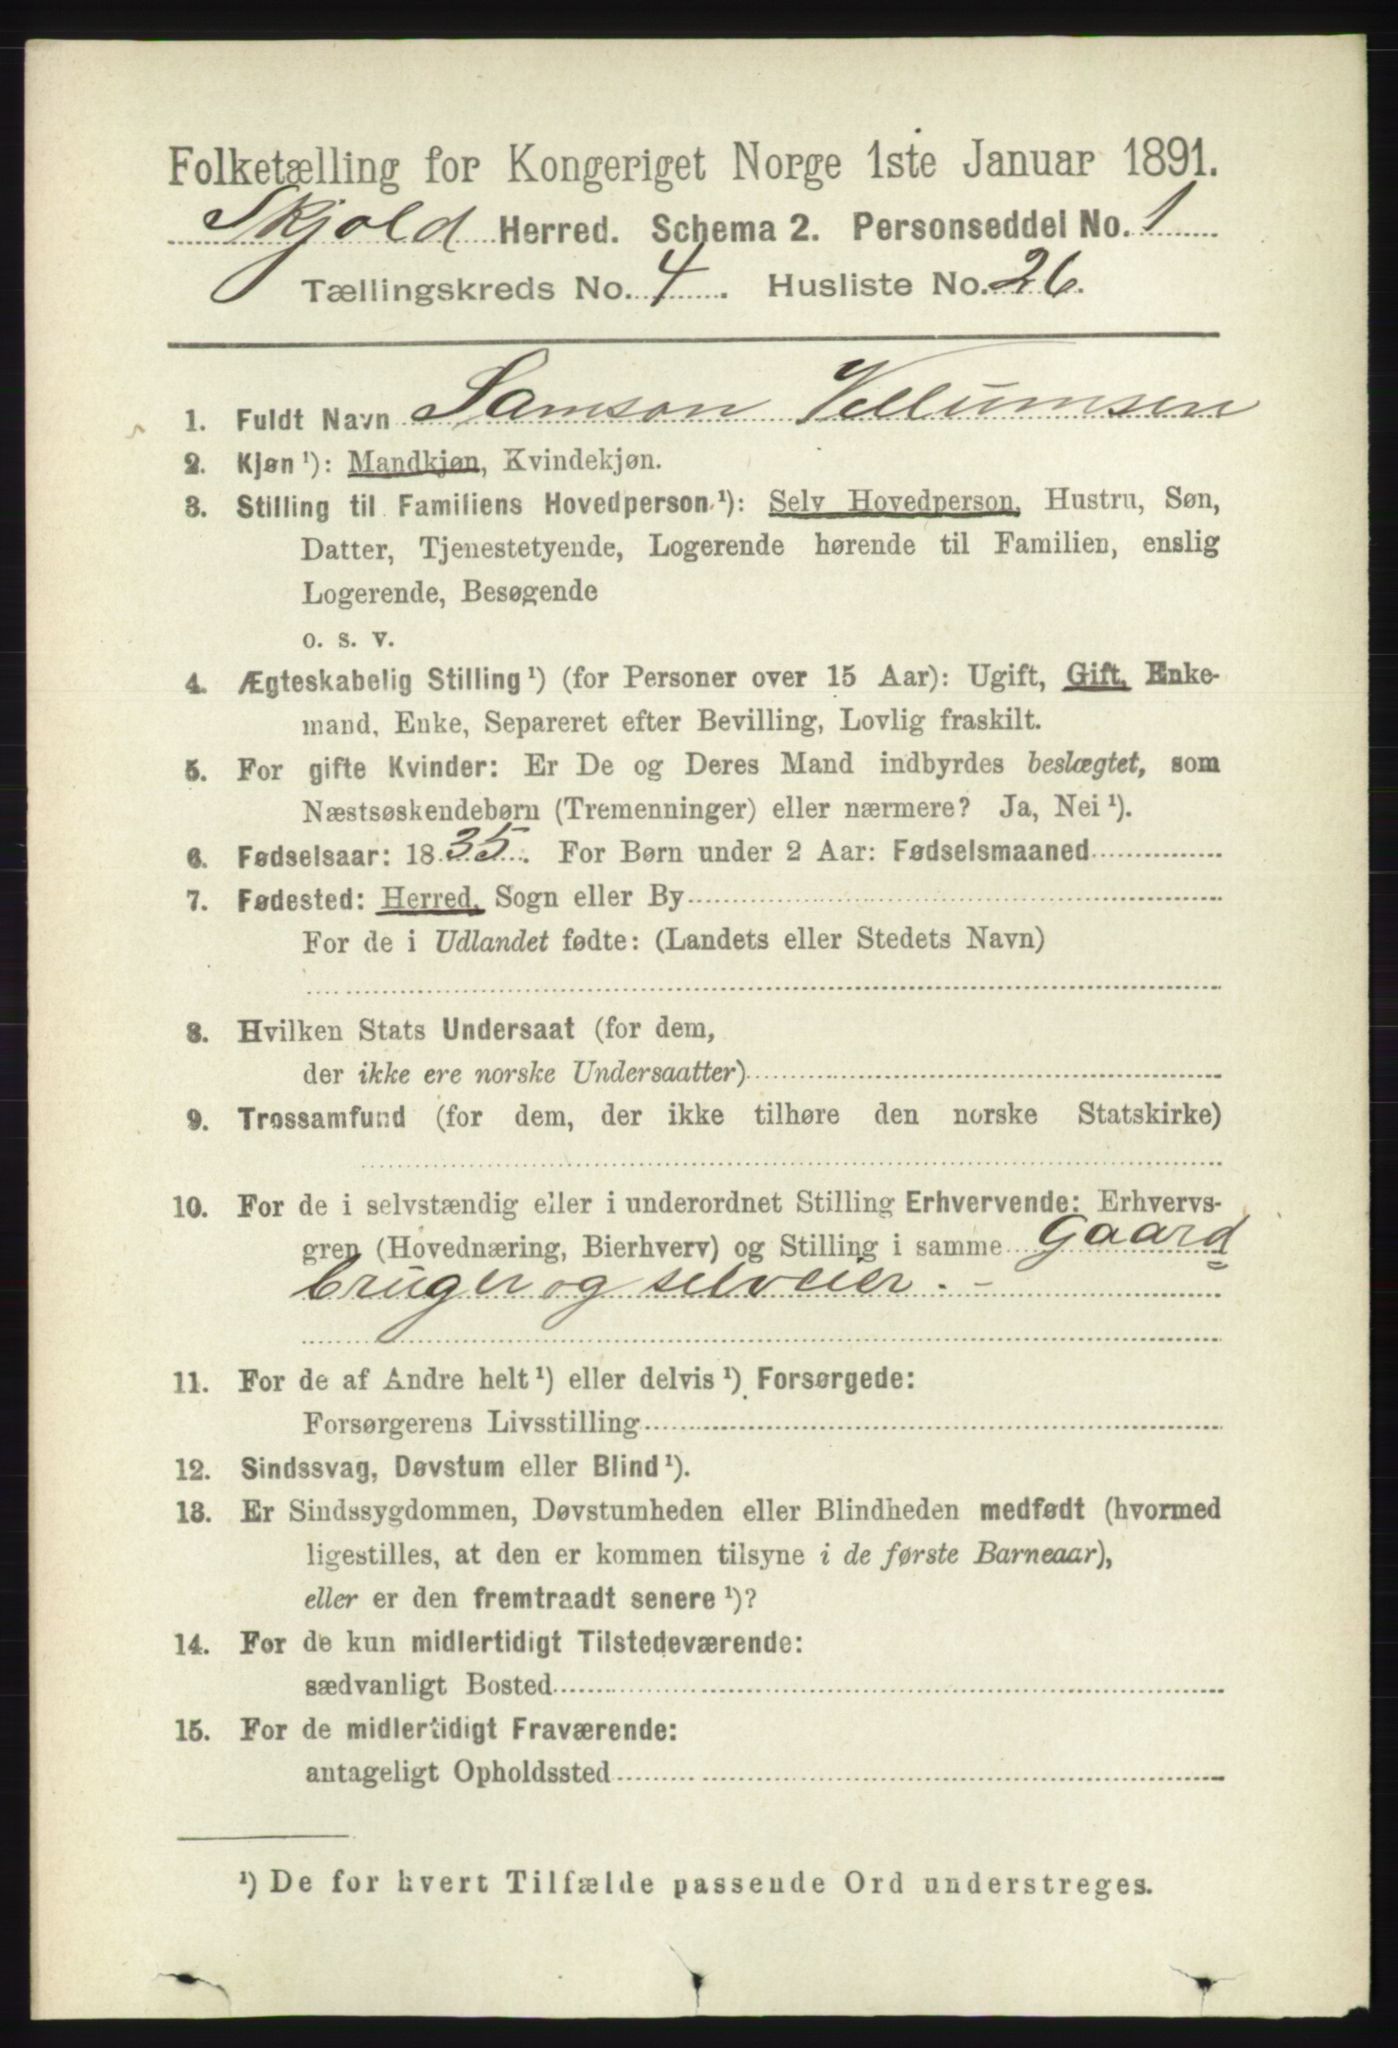 Folketælling for Kongeriget Norge 1ste Januar 1891.
Skjold Herred. Schema 2. Personseddel No. 1
Tællingskreds No. 4. Husliste No. 26.
1. Fuldt Navn Samson Vellumsen
2. Kjøn ¹): Mandkjøn, Kvindekjøn.
3. Stilling til Familiens Hovedperson ¹): Selv Hovedperson, Hustru, Søn,
Datter, Tjenestetyende, Logerende hørende til Familien, enslig
Logerende, Besøgende
o. s. v.
4. Ægteskabelig Stilling ¹) (for Personer over 15 Aar): Ugift, Gift, Enke-
mand, Enke, Separeret efter Bevilling, Lovlig fraskilt.
5. For gifte Kvinder: Er De og Deres Mand indbyrdes beslægtet, som
Næstsøskendebørn (Tremenninger) eller nærmere? Ja, Nei ¹).
6. Fødselsaar: 1835. For Børn under 2 Aar: Fødselsmaaned
7. Fødested: Herred, Sogn eller By
For de i Udlandet fødte: (Landets eller Stedets Navn)
8. Hvilken Stats Undersaat (for dem,
der ikke ere norske Undersaatter)
9. Trossamfund (for dem, der ikke tilhøre den norske Statskirke)
10. For de i selvstændig eller i underordnet Stilling Erhvervende: Erhvervs-
gren (Hovednæring, Bierhverv) og Stilling i samme Gaard=
bruger og selveier. -
11. For de af Andre helt ¹) eller delvis ¹) Forsørgede:
Forsørgerens Livsstilling
12. Sindssvag, Døvstum eller Blind ¹).
13. Er Sindssygdommen, Døvstumheden eller Blindheden medfødt (hvormed
ligestilles, at den er kommen tilsyne i de første Barneaar),
eller er den fremtraadt senere ¹)?
14. For de kun midlertidigt Tilstedeværende:
sædvanligt Bosted
15. For de midlertidigt Fraværende:
antageligt Opholdssted
¹) De for hvert Tilfælde passende Ord understreges.